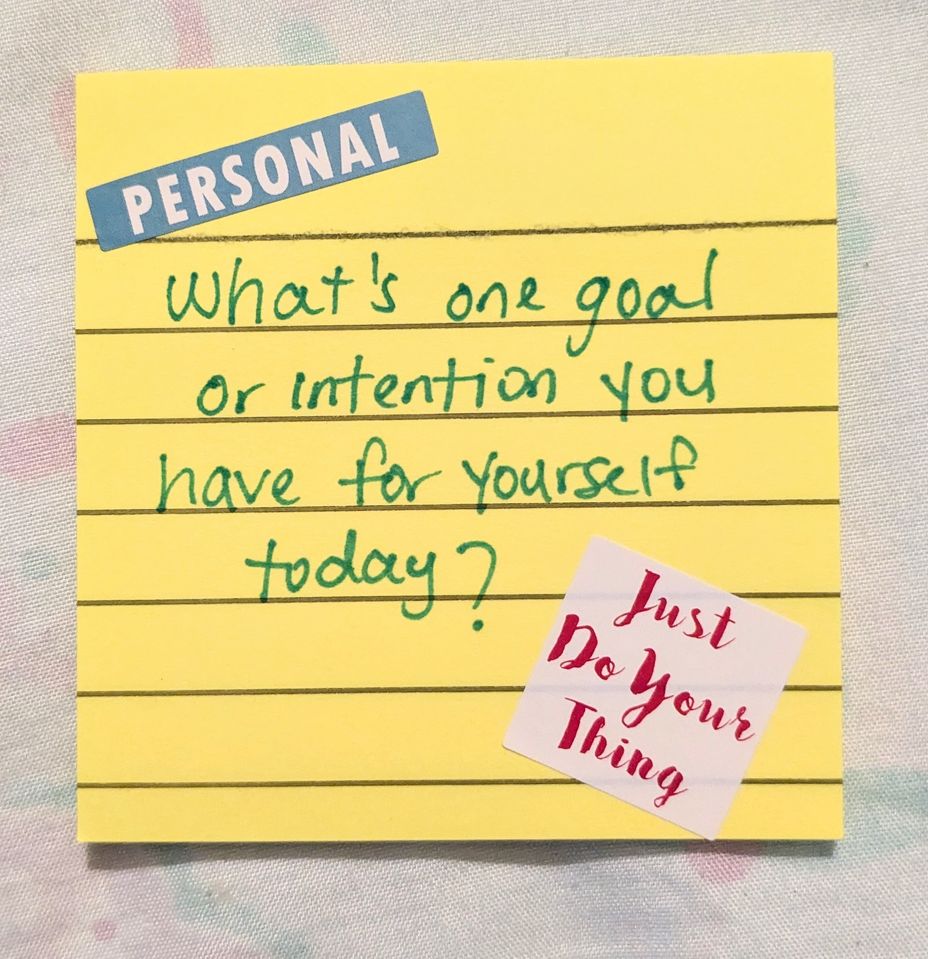 PERSONAL
What's one goal
or intention you
have for yourself
today?
Just
Do Your
Thing